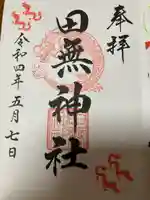 奉拝
田無神社
令和四年五月七日